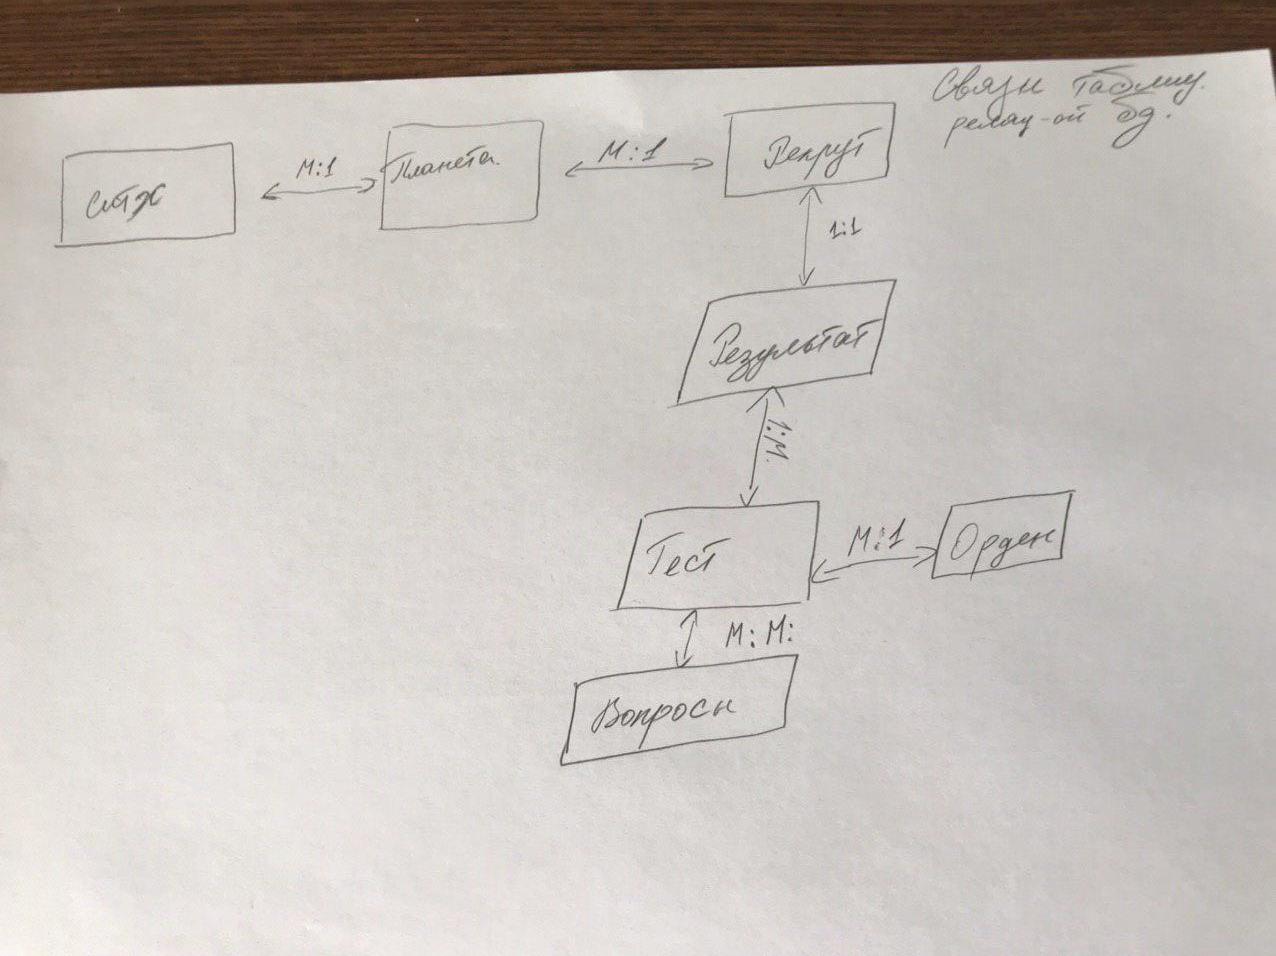 Связи таблиц.
реляц-ой бд.
ситх
М:1
Планета.
М:1
Рекрут
1:1
Результат
1:М.
Тест
М:1
Орден
М:М:
Вопросы